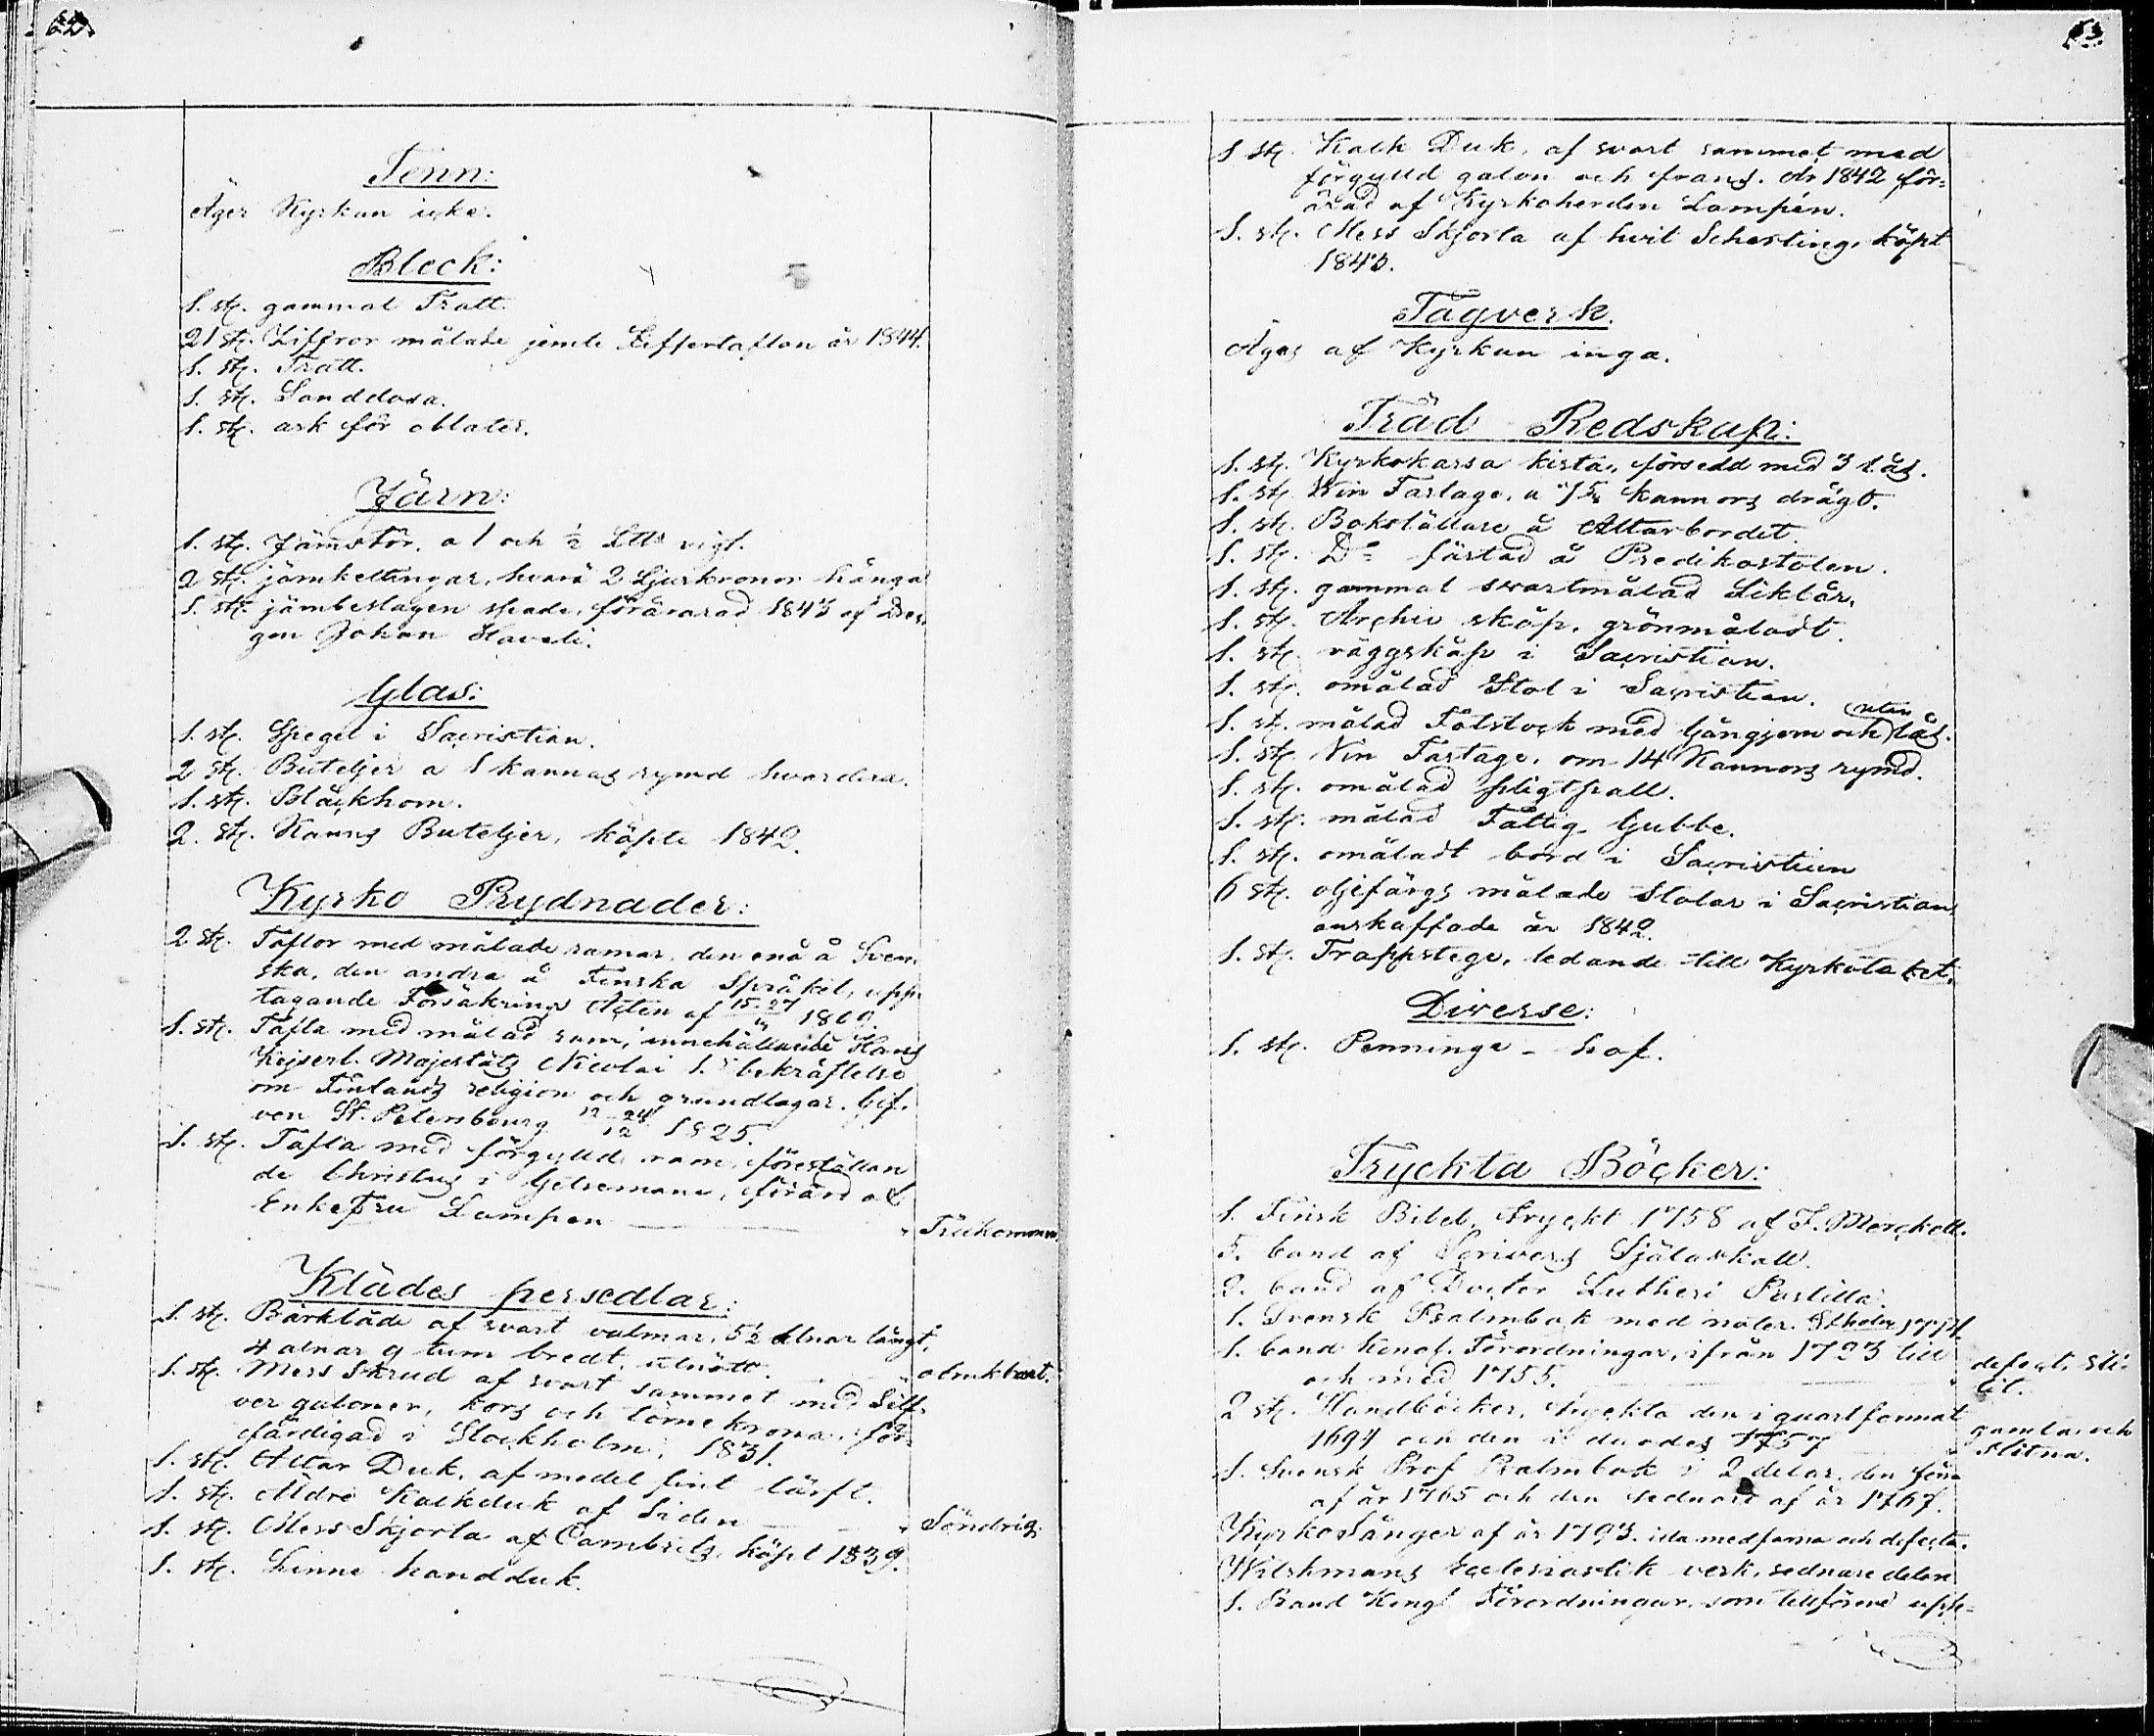 62.
Tenn:
Äger Kyrkan icke.
Bleck:
1. st. gammal Tratt.
21 st. Ziffror målade jemte Zieffertaflan år 1844.
1. st. Tratt.
1. st. Sanddosa.
1. st. ask för oblater.
Järn:
1. st. Järnstör, a 1 och ½ vigt.
2 st. järnkettingar, hvarå 2 Ljuskronor hänga
1. st. järnbeslagen spade, förärarad 1843 af
Johan
Glas:
1. st. Spegel i Sacristian.
2 st. Buteljer a 1 kannas rymd hvardera.
1. st. Bläckhorn.
2. st. Kanns Buteljer, köpte 1842.
Kyrko Prydnader:
2 st. Taflor med målade ramar, den ena å Sven-
ska, den andra å Finska Språket, upp-
tagande Försäkrings Acten af 15-27 1809.
1. st. Tafla med målad ram, innehållande Hans
Kejserl. Majestäts Nicolai 1. bekräftelse
om Finlands religion och grundlagar. Gif-
ven St. Petersbourg 12-24/12 1825.
1. st. Tafla med förgylld ram, föreställan
de Christus i Getsemane, förärd af
Enkefru Lampen
Klädes persedlar:
1. st. Bårkläde af svart valmar, 5½ alnar långt,
4 alnar 9 tum bredt, utnött. obrukbart.
1. st. Mess Skrud af svart sammet med Silf-
ver galoner, kors och törne krona, för-
färdigad i Stockholm, 1831.
1. st. Altar Duk, af medel fint lärft.
1. st. Äldre Kalkduk af Siden Söndrig.
1. st. Mess Skjorta af Cambrits, köpt 1839.
1. st. Linne handduk.
63.
1 st. Kalk Duk, af svart sammet med
förgylld galon och frans. År 1842 för-
ärad af Kyrkoherden Lampén.
1. st. Mess Skjorta af hvit Scherting, köpt
1843.
Tågverk.
Äges af Kyrkan inga.
Träd Redskap:
1. st. Kyrkokassa kista, försedd med 3 lås.
1. st. Win Fastage, a 15 kannors drägt.
1. st. Bokställare å Altarbordet.
1. st. Do fästad å Predikostolen.
1. st. gammal svartmålad Liklår.
1. st. Archiv skåp, grönmåladt.
1. st. väggskåp i Sacristian.
1. st. omålad Stol i Sacristian.
1. st. målad Fotstock med gångjern och utan lås.
1. st. Vin Fastage, om 14 Kannors rymd.
1. st. omålad pligtpall.
1. st. målad Fattig Gubbe.
1. st. omåladt bord i Sacristian
6 st. oljefärgs målade Stolar i Sacristian,
anskaffade år 1842.
1. st. Trappstege, ledande till Kyrkotaket.
Diverse:
1. st. Penninge-håf.
Tryckta Böcker:
1. Finsk Bibel, tryckt 1758 af J. Merckell.
5. band af Scrivers Själaskatt.
2. band af Doctor Lutheri Postilla.
1. Svensk Psalmbok med noter. Stholm
1. band Kongl. Förordningar, ifrån 1723 till
och med 1755. defect, sli-
tit.
2 st. Handböcker, tryckta den i quart format
1694 och den i duodes 1757 gamla och
slitna.
1. Svensk Prof Psalmbok i 2 delar, den förra
af år 1765 och den sednare af år 1767.
Kyrko Sånger af år 1793. illa medfarna och defecta.
Wilskmans Ecclesiastik verk, sednare delen
1. Band Kongl. Förordningar, som tillförene upp-